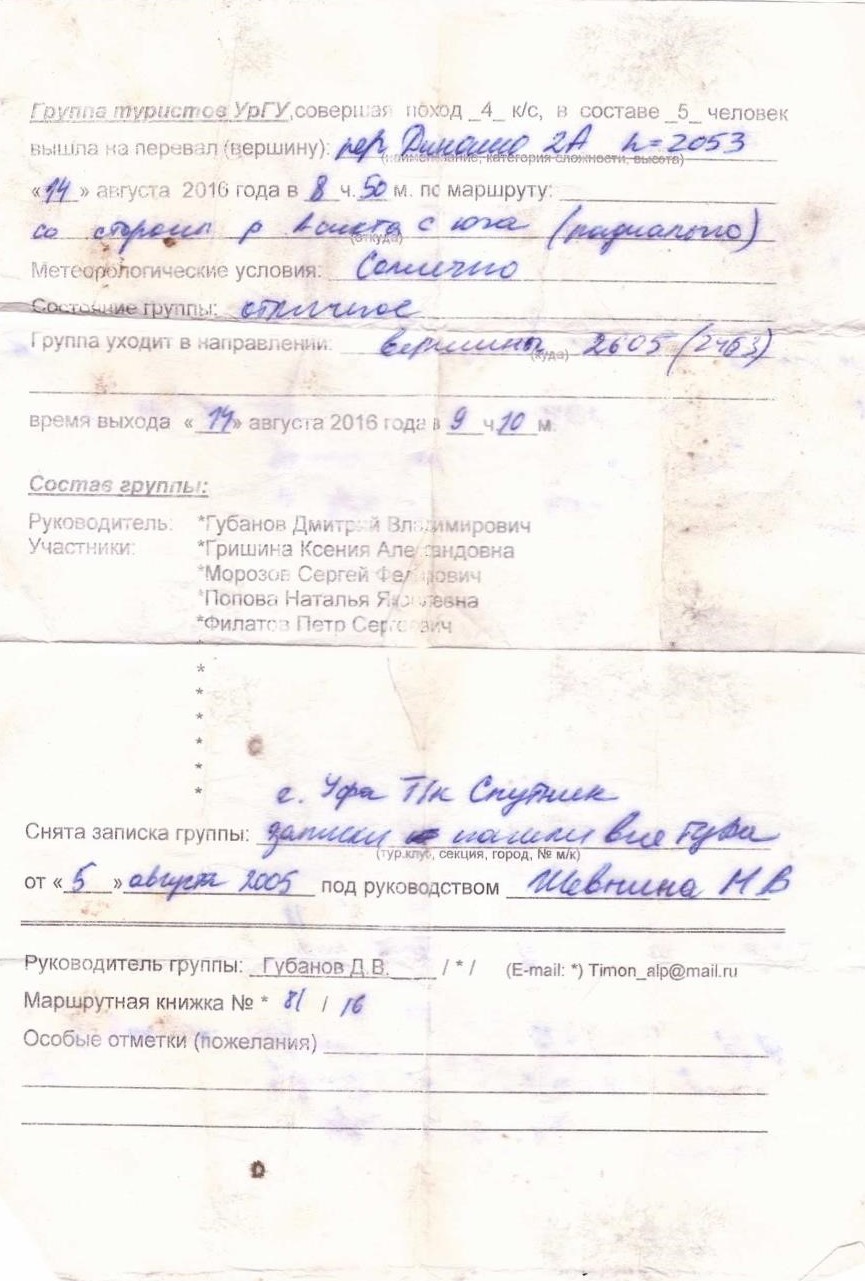 Группа туристов УрГУ,совершая поход _4_ к/с, в составе _5_ человек
вышла на перевал (вершину): пер. Динамо 2А h=2053
(наименование, категория сложности, высота)
«14» августа 2016 года в 8 ч. 50 м. по маршруту:
со стороны р с юга (радиально)
(откуда)
Метеорологические условия: Солнечно
Состояние группы: отличное
Группа уходит в направлении: вершины 2605 (2463)
(куда)
время выхода «14» августа 2016 года в 9 ч.10 м.
Состав группы:
Руководитель: *Губанов Дмитрий Владимирович
Участники: *Гришина Ксения Александовна
*Морозов Сергей
*Попова Наталья Яковлевна
*Филатов Петр Сергеевич
*
*
*
*
*
*
г. Уфа Т/к Спутник
Снята записка группы: записки нашли вне тура
(тур.клуб, секция, город, № м/к)
от «5» августа 2005 под руководством Шевнина Н В
Руководитель группы: Губанов Д.В. / * / (E-mail: *) Timon_alp@mail.ru
Маршрутная книжка № * 81 / 16
Особые отметки (пожелания)